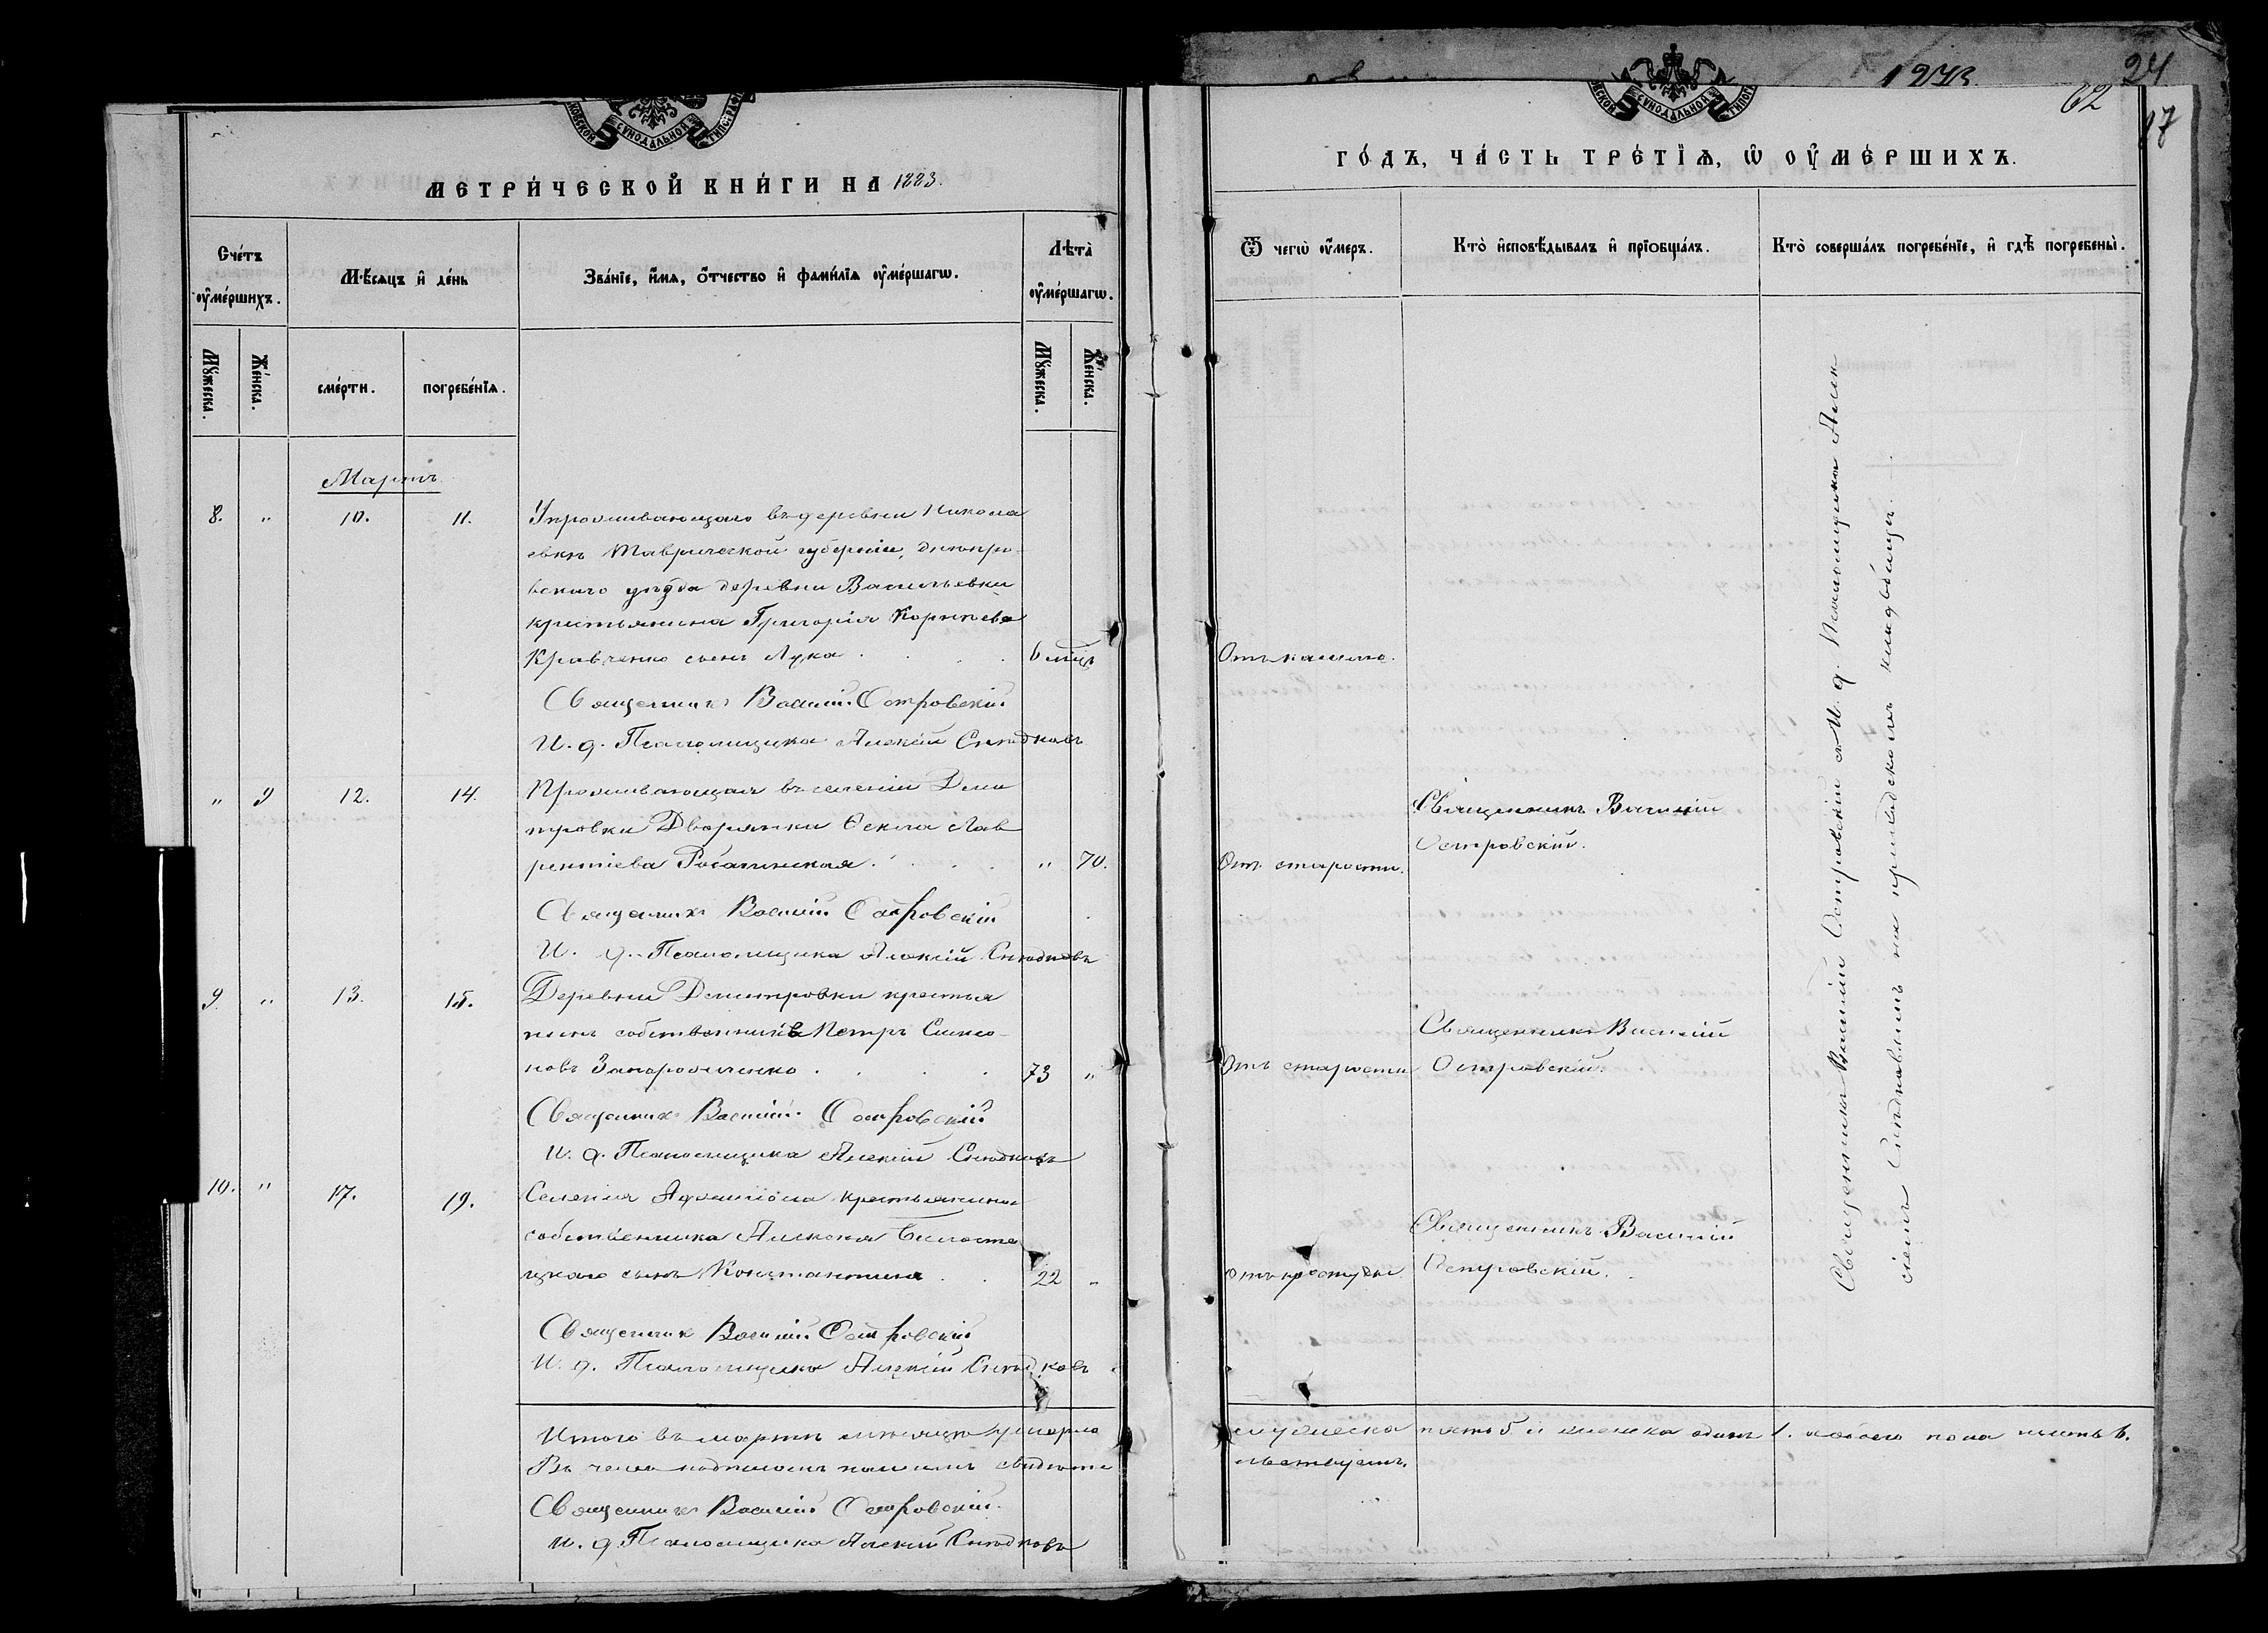 МЕТРИ́ЧЕСКОЙ КНИ́ГИ НА 1883.
Сче́тъ ᲂу҆ме́ршихъ.
Мѣ́сѧцъ и҆ де́нь
Зва́нїе, и҆́мѧ, ѻ҆́тчество и҆ фами́лїѧ ᲂу҆ме́ршагѡ.
Лѣта̀ ᲂу҆ме́ршагѡ.
Мꙋ́жеска.
Же́нска.
сме́рти.
погребе́нїѧ.
Мꙋ́жеска.
Же́нска.
Мартъ
8. " 10. 11. Упроживающаго въ деревни Никола
евкѣ Таврической губерніи, днѣпро-
вскаго уѣзда деревни Васильевки
крестьянина Григорія Корнѣева
Кравченко сынъ Лука . . . . 6 мѣц
Священникъ Василій Островскій
И. д. Псаломщика Алексій Снѣдковъ
" 9 12. 14. Проживающая въ селеніи Дми
тровки Дворянка Оекла Лав
рентіева . . . . " 70.
Священникъ Василій Островскій
И. д. Псаломщика Алексій Снѣдковъ
9. " 13. 15. Деревни Дмитровки крестья
нинъ собственникъ Петръ Симо-
новъ Запорожченко . . . . 73 "
Священникъ Василій Островскій
И. д. Псаломщика Алексій Снѣдковъ
10. " 17. 19. Селенія крестьянина
собственника Алексея Билоста
цкаго сынъ Константинъ . . 22 "
Священник Василій Островскій
И. д. Псаломщика Алексій Снѣдковъ
Итого въ мартѣ мѣсяцѣ умерло
Въ чемъ подписомъ нашимъ свидѣте
Священникъ Василій Островскій.
И. д. Псаломщика Алексій Снѣдковъ
24
62
17
ГО́ДЪ, ЧА́СТЬ ТРЕ́ТЇѦ, Ѡ҆ ОУ҆МЕ́РШИХЪ.
Ѿ чегѡ̀ ᲂу҆́меръ.
Кто̀ и҆сповѣ́дывалъ и҆ прїобща́лъ.
Кто̀ соверша́лъ погребе́нїе, и҆ гдѣ̀ погребены̀.
Отъ кашля.
Священникъ Василій
Островскій.
Отъ старости.
Священникъ Василій
Отъ старости Островскій.
Священникъ Василій
Отъ простуды Островскій.
Священникъ Василій Островскій съ И. д. Псаломщика Алек
сіемъ Снѣдковымъ на приходскомъ кладбищѣ.
мужеска пять 5 и женска одинъ 1. а обоего пола шесть 6.
льствуемъ.